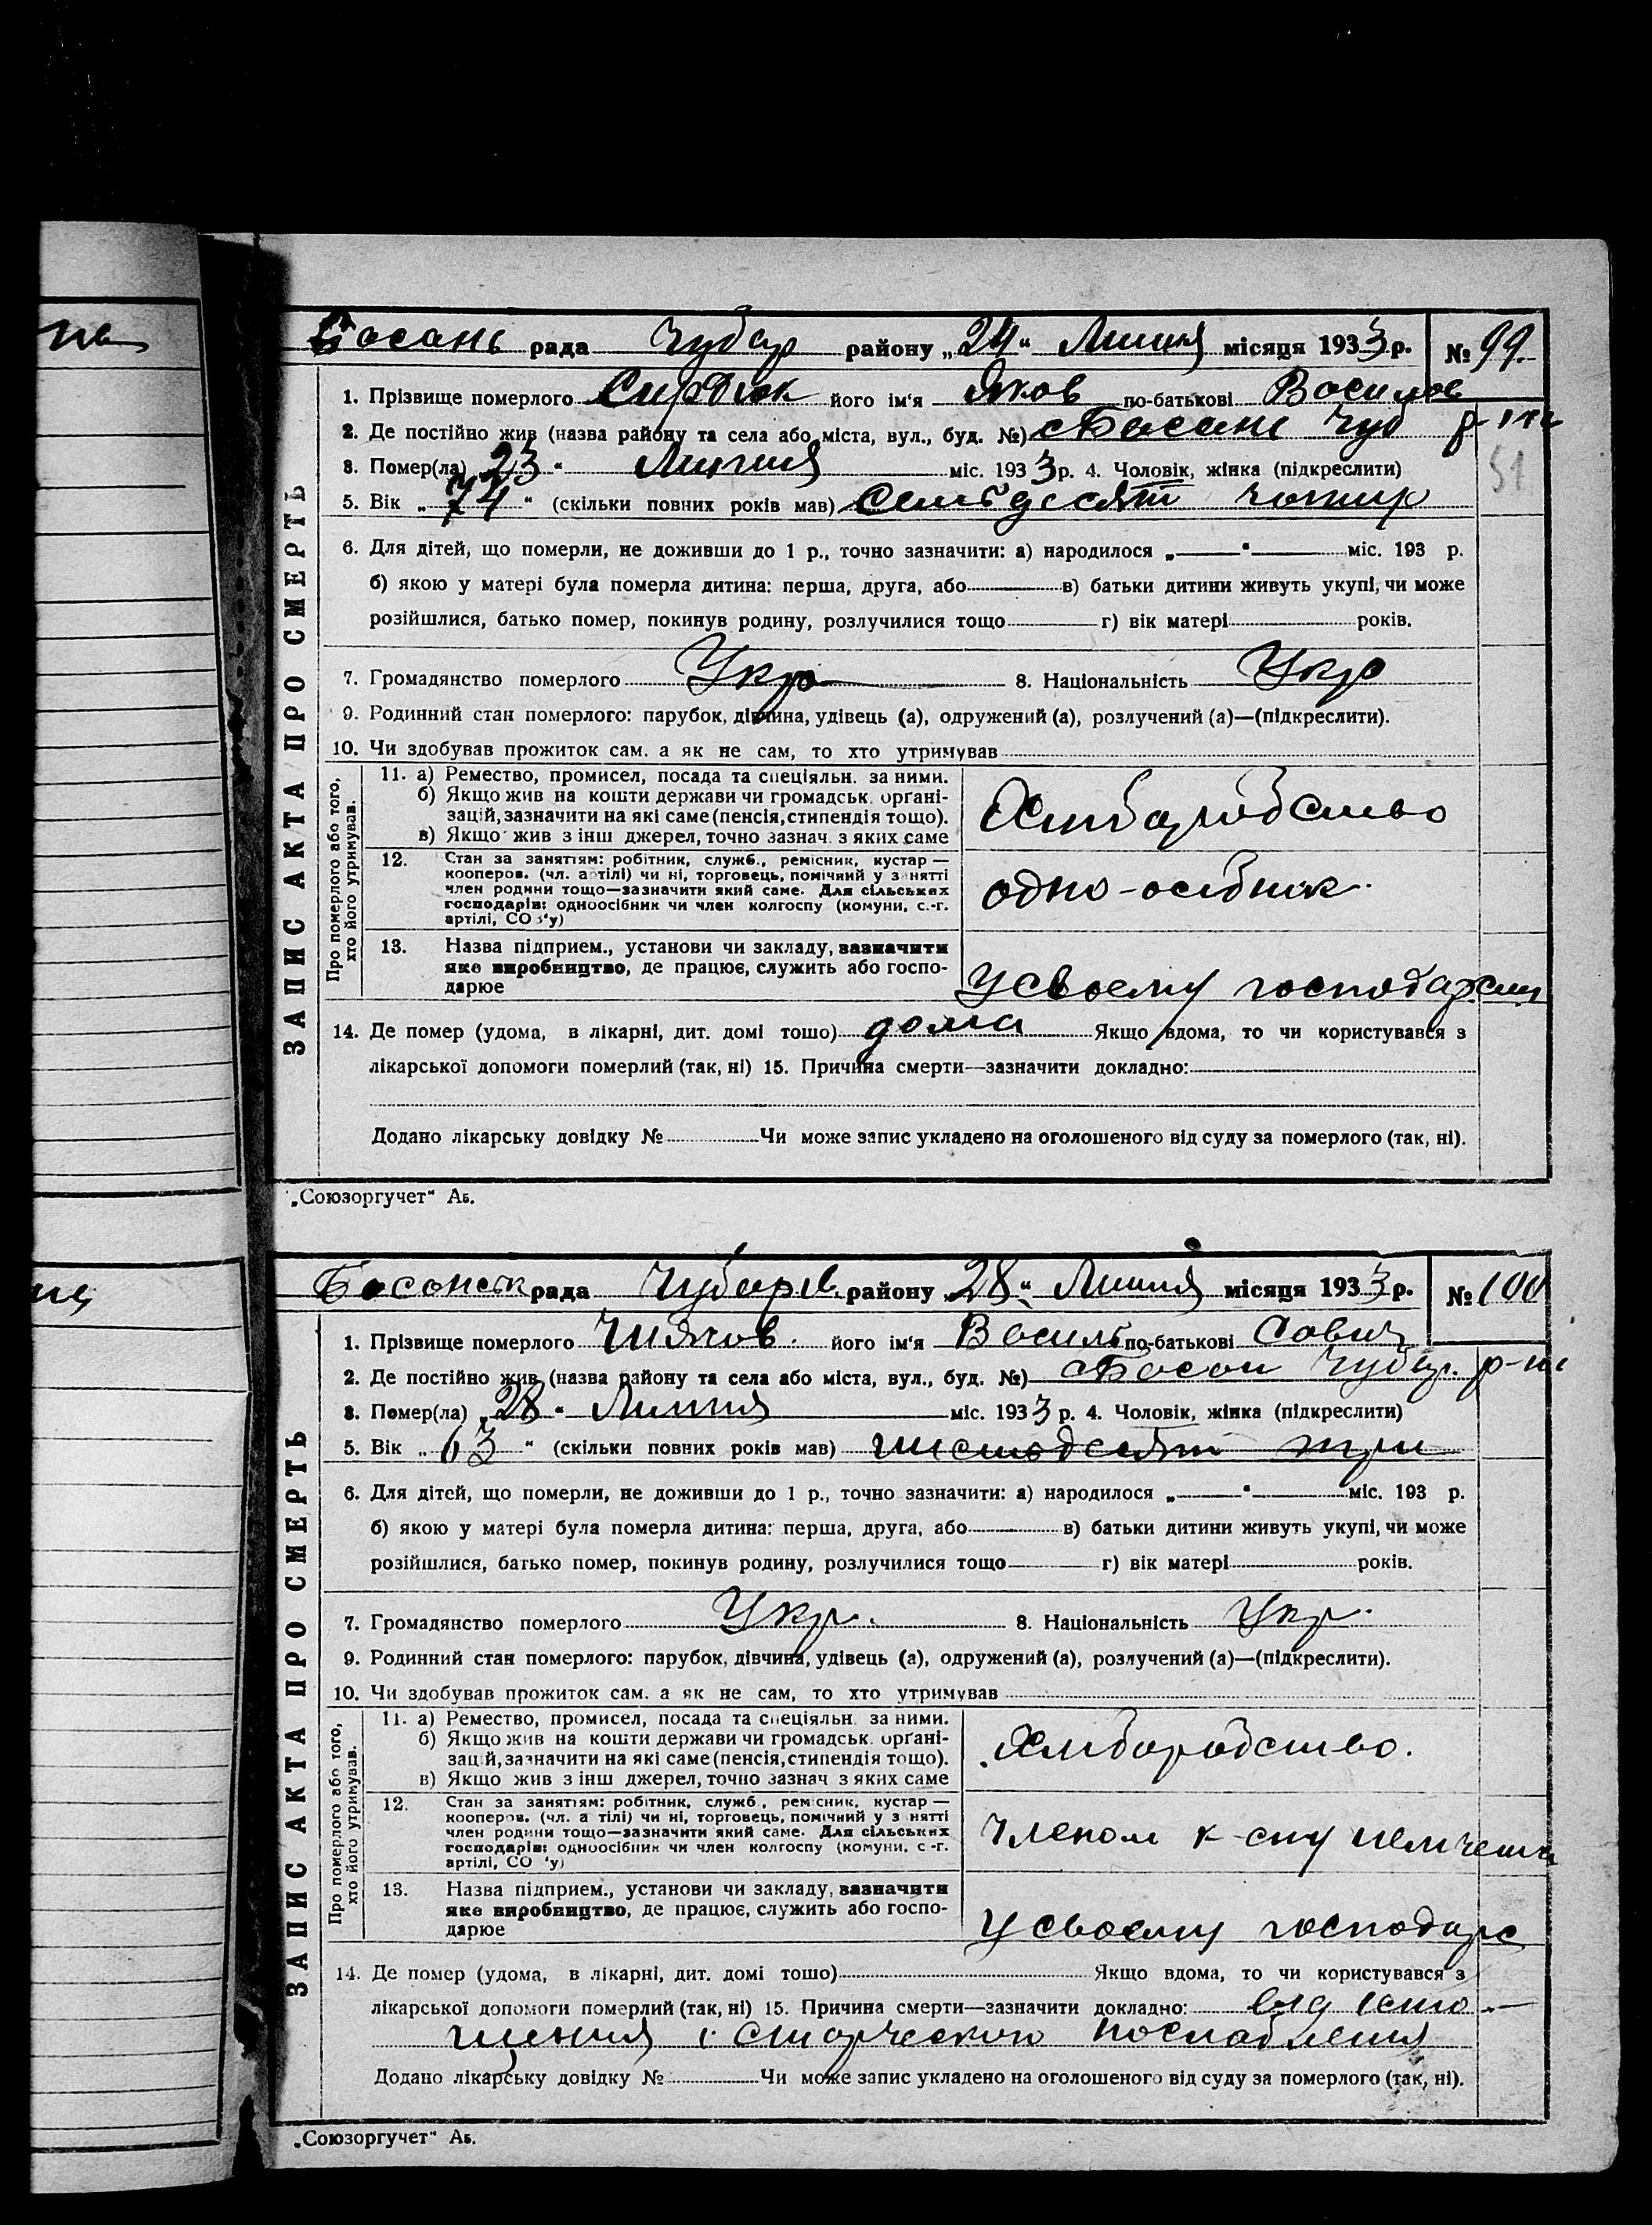 Босань рада Чубар району „24" Липня місяця 1933 р. № 99.
1. Прізвище померлого його ім'я Яков по-батькові Василов
2. Де постійно жив (назва району та села або міста, вул., буд. №) с Басань Чуб р-на
51
3. Помер(ла) „23" Липня міс. 1933 р. 4. Чоловік, жінка (підкреслити)
5. Вік „74" (скільки повних років мав) Семьдесят чотир
6. Для дітей, що померли, не доживши до 1 р., точно зазначити: а) народилося „—"— міс. 193 р.
б) якою у матері була померла дитина: перша, друга, або в) батьки дитини живуть укупі, чи може
розійшлися, батько помер, покинув родину, розлучилися тощо г) вік матері років.
7. Громадянство померлого Укр 8. Національність Укр
9. Родинний стан померлого: парубок, дівчина, удівець (а), одружений (а), розлучений (а)—(підкреслити).
10. Чи здобував прожиток сам. а як не сам, то хто утримував
ЗАПИС АКТА ПРО СМЕРТЬ
Про померлого або того,
хто його утримував.
11. а) Ремество, промисел, посада та спеціяльн. за ними.
б) Якщо жив на кошти держави чи громадськ. орґані-
зацій, зазначити на які саме (пенсія, стипендія тощо).
в) Якщо жив з інш джерел, точно зазнач. з яких саме
Хлібародство
12. Стан за занятям: робітник, служб., ремісник, кустар —
кооперов. (чл. артілі) чи ні, торговець, помічний у занятті
член родини тощо—зазначити який саме. Для сільських
господарів: одноосібник чи член колгоспу (комуни, с.-г.
артілі, СОЗ'у)
одно-осібник.
13. Назва підприєм., установи чи закладу, зазначити
яке виробництво, де працює, служить або госпо-
дарює
У своему господарстві
14. Де помер (удома, в лікарні, дит. домі тошо) дома Якщо вдома, то чи користувався з
лікарської допомоги померлий (так, ні) 15. Причина смерти—зазначити докладно:
Додано лікарську довідку № Чи може запис укладено на оголошеного від суду за померлого (так, ні).
„Союзоргучет" Аб.
Босонськ рада Чубарів. району „28" Липня місяця 1933 р. № 100
1. Прізвище померлого його ім'я Василь по-батькові Савич
2. Де постійно жив (назва району та села або міста, вул., буд. №) с Босань Чубар. р-на
3. Помер(ла) „28" Липня міс. 1933 р. 4. Чоловік, жінка (підкреслити)
5. Вік „63" (скільки повних років мав) шестьдесят три
6. Для дітей, що померли, не доживши до 1 р., точно зазначити: а) народилося „—"— міс. 193 р.
б) якою у матері була померла дитина: перша, друга, або в) батьки дитини живуть укупі, чи може
розійшлися, батько помер, покинув родину, розлучилися тощо г) вік матері років.
7. Громадянство померлого Укр. 8. Національність Укр.
9. Родинний стан померлого: парубок, дівчина, удівець (а), одружений (а), розлучений (а)—(підкреслити).
10. Чи здобував прожиток сам. а як не сам, то хто утримував
ЗАПИС АКТА ПРО СМЕРТЬ
Про померлого або того,
хто його утримував.
11. а) Ремество, промисел, посада та спеціяльн. за ними.
б) Якщо жив на кошти держави чи громадськ. орґані-
зацій, зазначити на які саме (пенсія, стипендія тощо).
в) Якщо жив з інш джерел, точно зазнач з яких саме
Хлибородство.
12. Стан за занятям: робітник, служб., ремісник, кустар —
кооперов. (чл. артілі) чи ні, торговець, помічний у занятті
член родини тощо—зазначити який саме. Для сільських
господарів: одноосібник чи член колгоспу (комуни, с-г.
артілі, СОЗ'у)
Членом к-спу
13. Назва підприєм., установи чи закладу, зазначити
яке виробництво, де працює, служить або госпо-
дарює
У своему господарс
14. Де помер (удома, в лікарні, дит. домі тошо) Якщо вдома, то чи користувався з
лікарської допомоги померлий (так, ні) 15. Причина смерти—зазначити докладно: від істо-
щения і старческого послабления
Додано лікарську довідку № Чи може запис укладено на оголошеного від суду за померлого (так, ні).
„Союзоргучет" Аб.